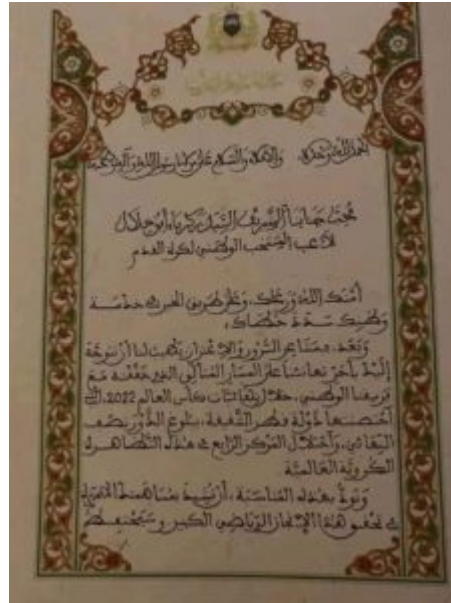 الحمد لله وحده، والصلاة والسلام على مولانا رسول الله وآله وصحبه
محب جنابنا الشريف السيد زكرياء أبو خلال
لاعب المنتخب الوطني لكرة القدم
أمنك الله ورعاك، وعلى طريق الخير في خدمة
وطنك سدد خطاك،
وبعد، فمشاعر السرور والاعتزاز يطيب لنا أن نتوجه
إليك بأحر تهانئنا على المسار المتألق الذي حققته مع
فريقنا الوطني، خلال نهائيات كأس العالم 2022، التي
احتضنتها دولة قطر الشقيقة، ببلوغ الدور نصف
النهائي، واحتلال المركز الرابع في هذه التظاهرة
الكروية العالمية
ونود بهذه المناسبة، أن نشيد بمساهمتك
في تحقيق هذا الإنجاز الرياضي الكبير